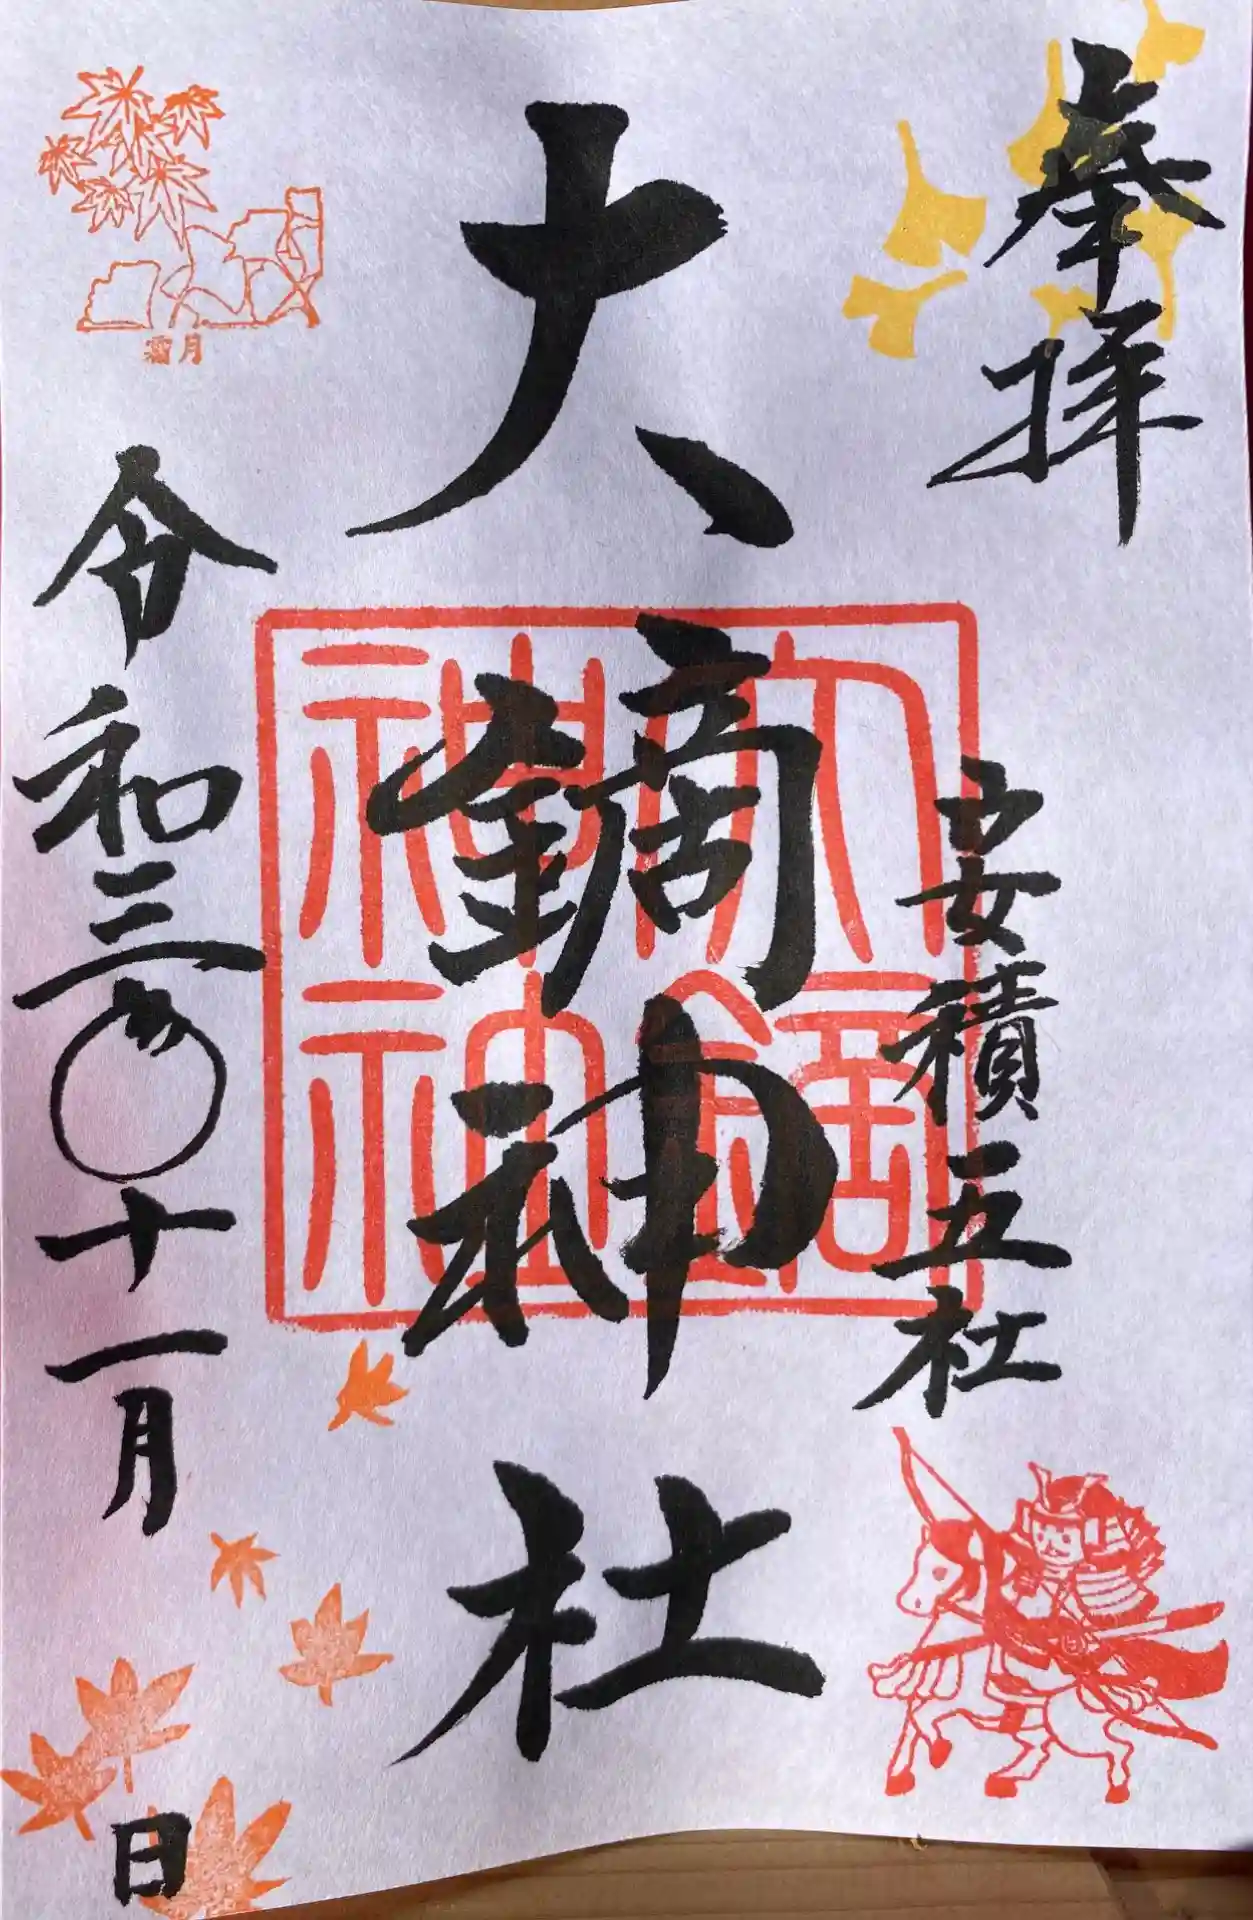 奉拝
安積五社
大鏑神社
大鏑
神社
霜月
令和三年十一月 日